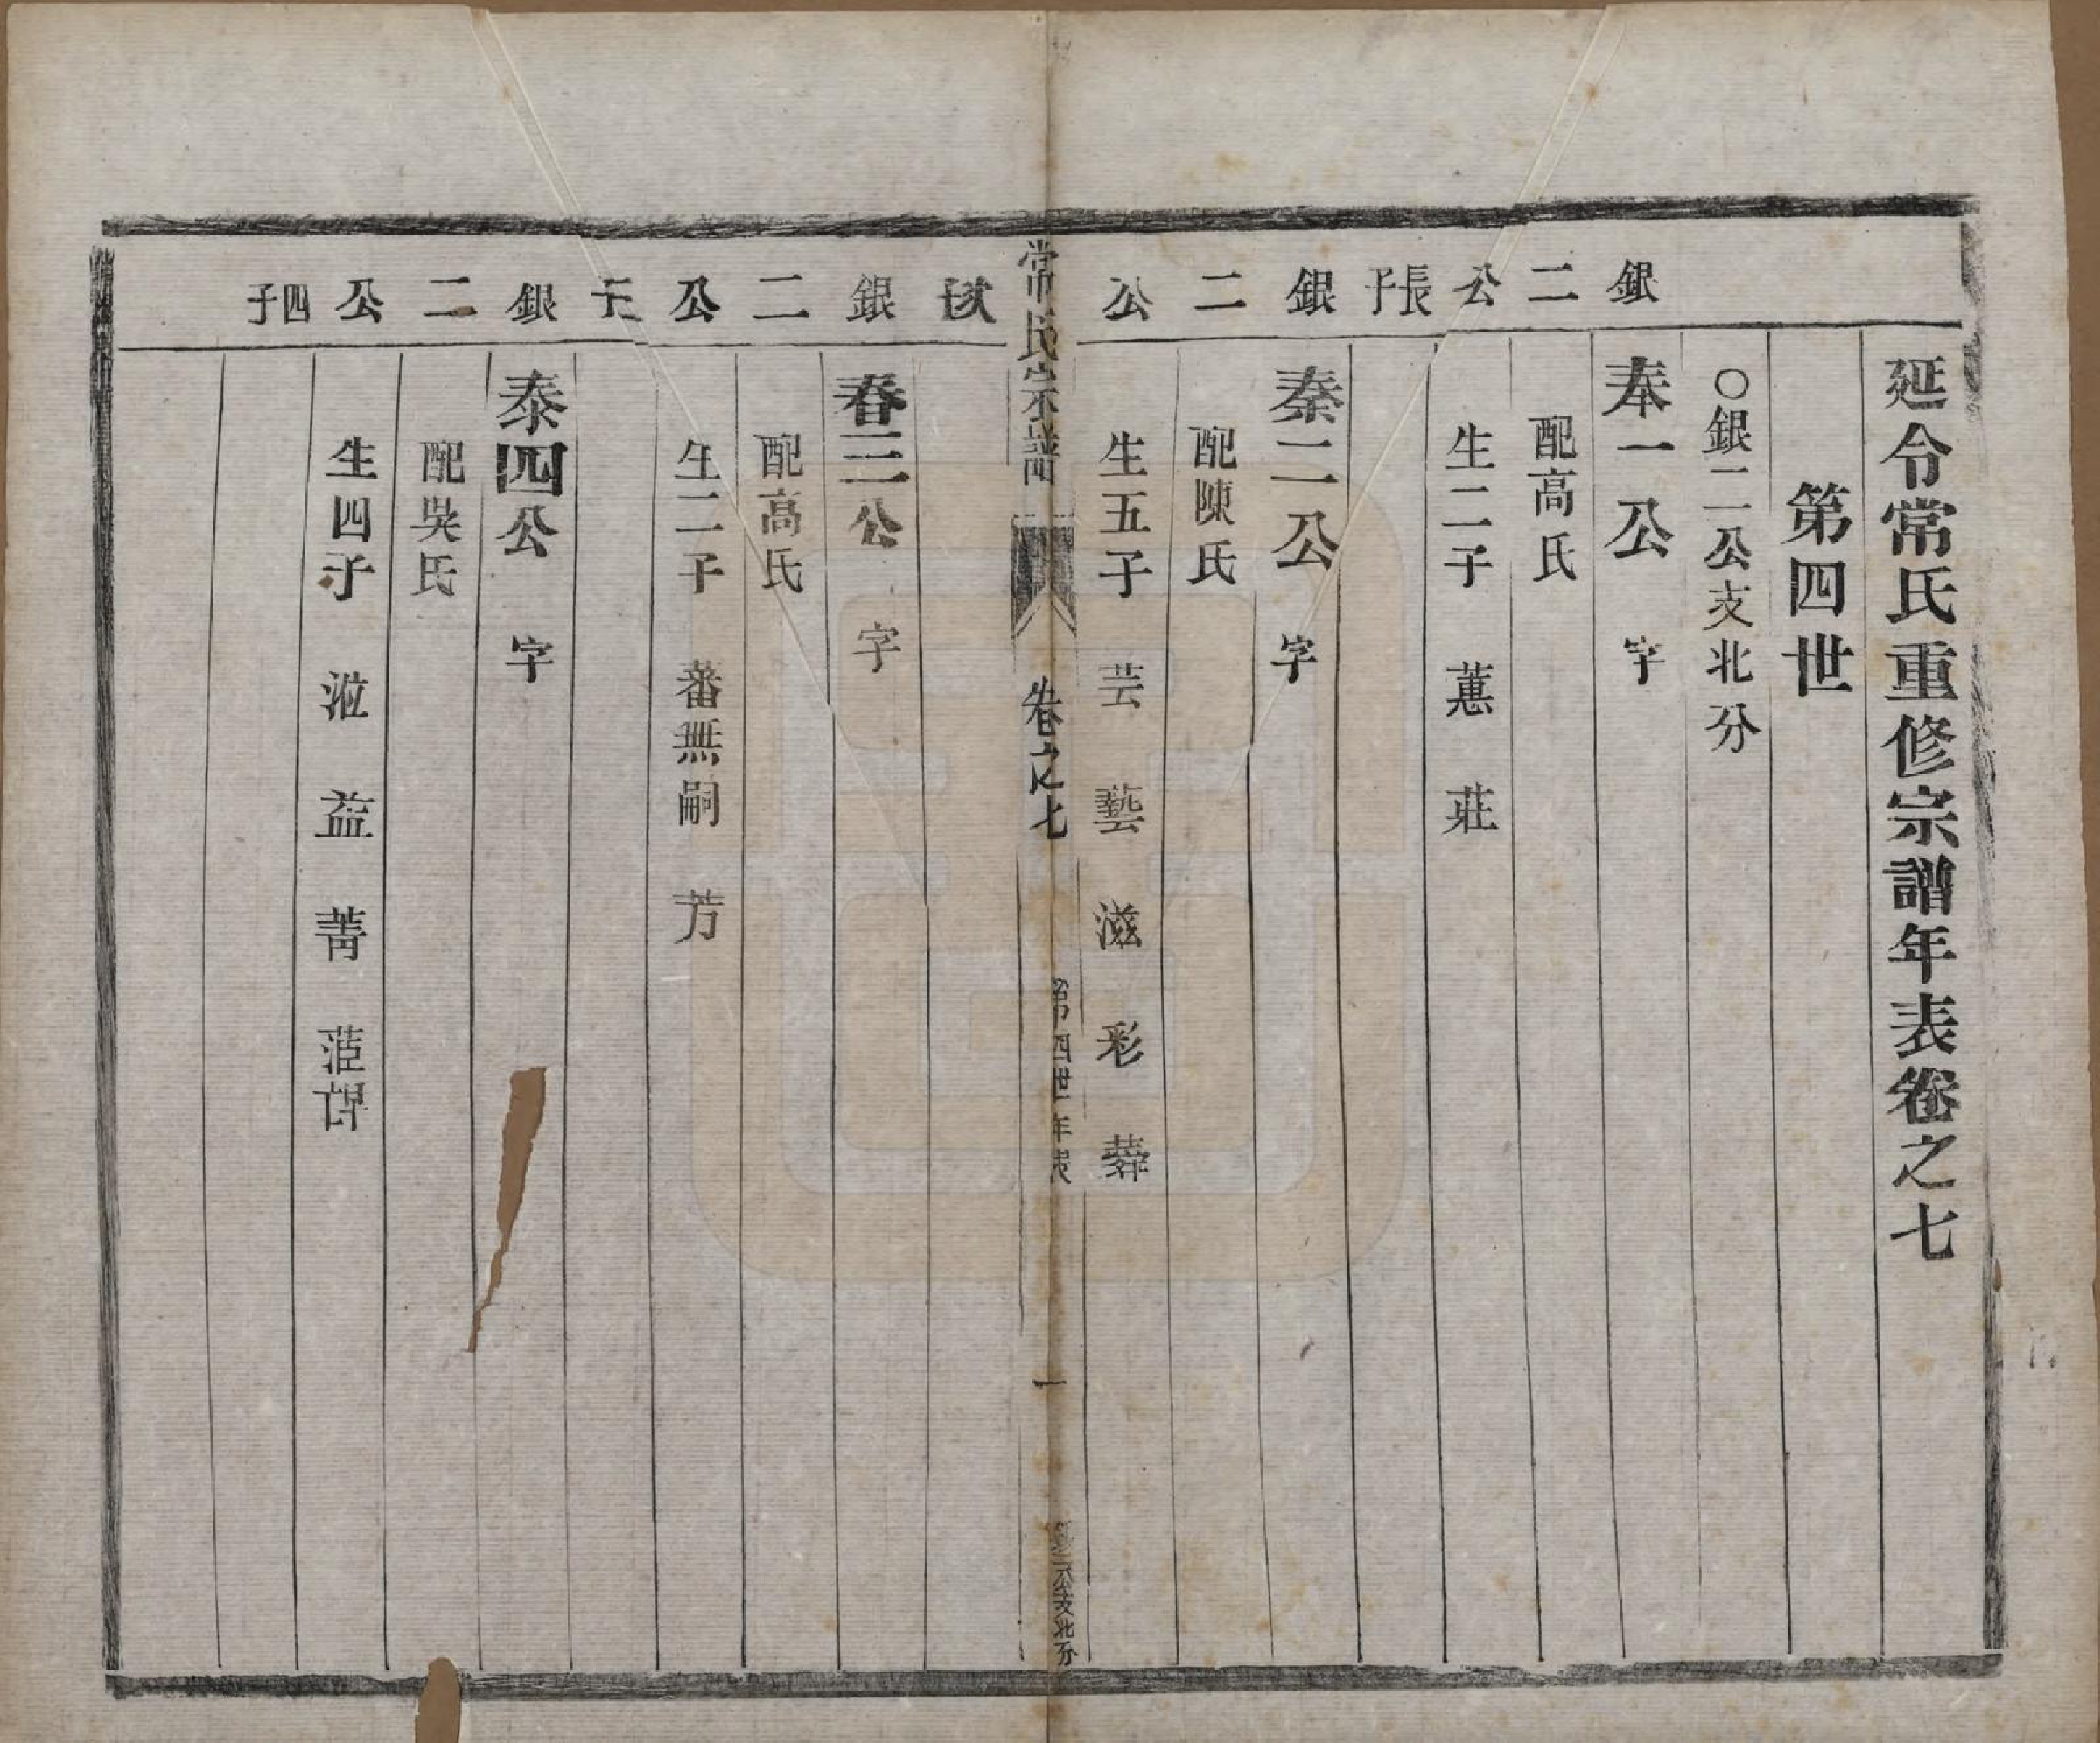 延令常氏重修宗譜年表卷之七
第四世
○銀二公支北分
銀二公長子
奉一公　字
配高氏
生二子　蕙　莊
銀二公次子
秦二公　字
配陳氏
生五子　芸　藝　滋　彩　蕣
常氏宗譜　卷之七　第四世年表　一　銀二公支北分
銀二公三子
春三公　字
配高氏
生二子　蕃無嗣　芳
銀二公四子
泰四公　字
配吳氏
生四子　涖　益　菁　茝